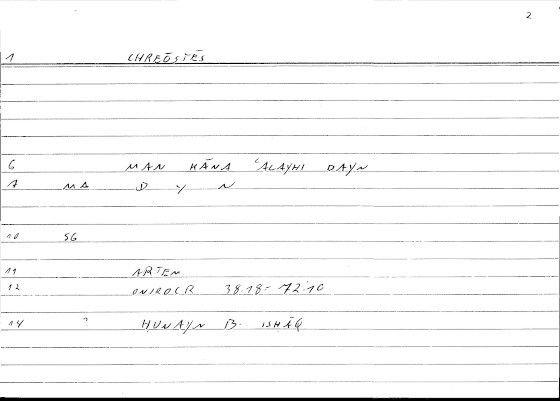 2
1 CHREŌSTĒS
6 MAN KĀNA ʿALAYHI DAYN
7 MA D Y N
10 SG
11 ARTEM
12 ONIROCR 38.18 = 72.10
14 ? HUNAYN B. ISHĀQ